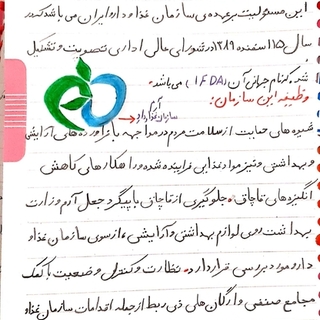 این مسئولیت برعهده‌ی سازمان غذا و دارو ایران می باشد که در
سال ۱۱۵ اسفند ۱۳۸۹ در شورای عالی اداری تصویب و تشکیل
شد. که نام جهانی آن (IFDA) می باشد.
وظیفه این سازمان:
آرم
سازمان غذا و دارو
شیوه های حمایت از سلامت مردم در مواجهه با فرآورده های آرایشی
و بهداشتی و نیز مواد غذایی فزاینده شده و راهکارهای کاهش
انگیزه های قاچاق، جلوگیری از قاچاق با پیگرد جعل آرم وزارت
بهداشت روی لوازم بهداشتی و آرایشی از سوی سازمان غذا و
دارو مورد بررسی قرار داد. نظارت و کنترل وضعیت با کمک
مجامع صنفی و ارگان های ذی ربط از جمله اقدامات سازمان غذا و